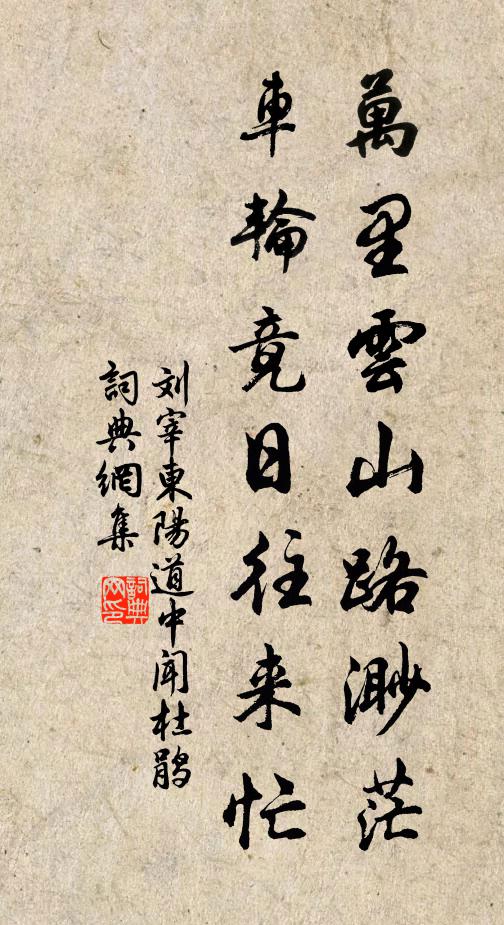 萬里雲山路渺茫
車輪竟日往来忙
刘宰東陽道中闻杜鹃
詞典網集
詞典